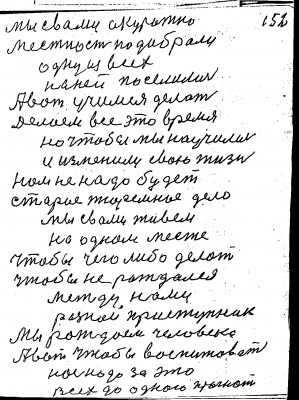 152
мы свами окуратно
местност подобрали
одну из всех
на ней поселилис
А вот учимся делат
делаем все это время
но чтобы мы научилис
и изменили свою жизн
нам не надо будет
старое тюремное дело
мы свами живем
на одном месте
чтобы чего либо делат
чтобы не рождался
между нами
разной приступник
Мы рождаем человека
А вот чтобы воспитоват
нас надо за это
всех до одного